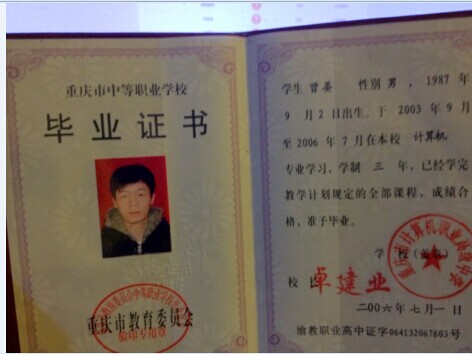 重庆市中等职业学校
毕业证书
重庆市教育委员会
学生 曾晏 性别 男 , 1987 年
9 月 2 日出生。于 2003 年 9 月
至 2006 年 7 月在本校 计算机
专业学习，学制 三 年，已经学完
教学计划规定的全部课程，成绩合
格，准予毕业。
学校(盖章)
校长 卓建业
二00六年七月一日
渝教职业高中证字064132067603号